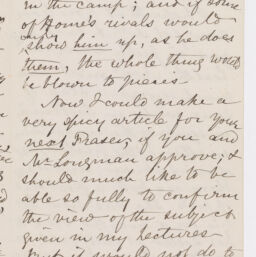 in the camp; and if some
of Home's rivals would
only
show him up, as he does
them, the whole thing would
be blown to pieces
Now I could make a
very spicy article for your
next Fraser, if you and
Mr Longman approve; &
should much like to be
able so fully to confirm
the view of the subject
given in my lectures
But it would not do to